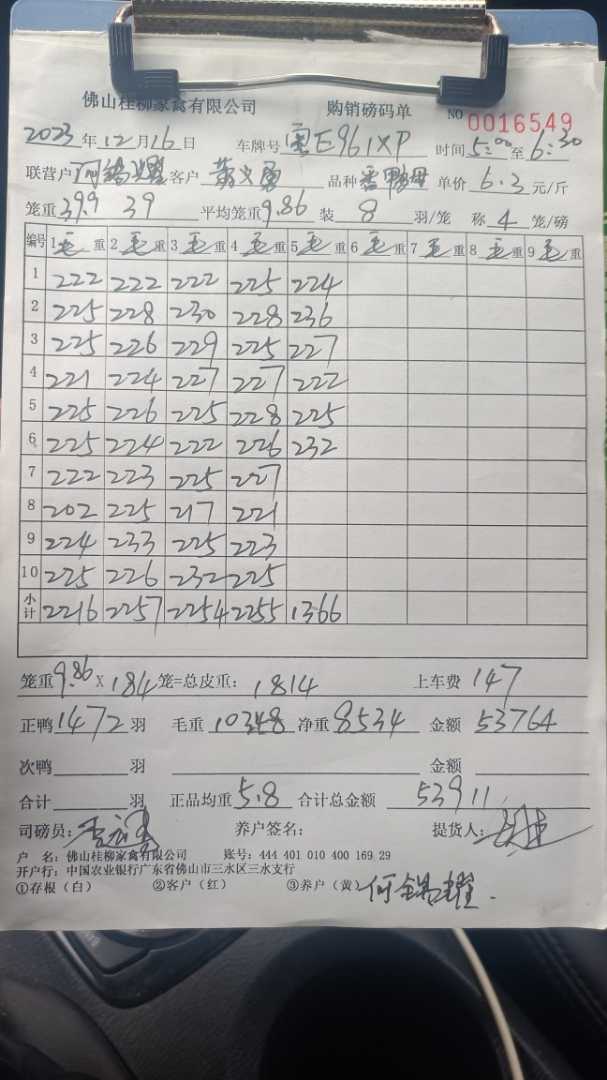 佛山桂柳家禽有限公司 购销磅码单 NO 0016549
2023年12月16日 车牌号 粤E961XP 时间5:00至6:30
联营户 何锦耀 客户 黄义勇 品种 番鸭母 单价 6.3 元/斤
笼重 39.9 39 平均笼重 9.86 装 8 羽/笼 称 4 笼/磅
编号 1毛重 2毛重 3毛重 4毛重 5毛重 6毛重 7毛重 8毛重 9毛重
1 222 222 222 225 224
2 225 228 230 228 236
3 225 226 229 225 227
4 221 224 227 227 222
5 225 226 225 228 225
6 225 224 222 226 232
7 222 223 225 227
8 202 225 217 221
9 224 233 225 223
10 225 226 232 225
小计 2216 2257 2254 2255 1366
笼重 9.86 X 184 笼=总皮重: 1814 上车费 147
正鸭 1472 羽 毛重 10348 净重 8534 金额 53764
次鸭 羽 金额
合计 羽 正品均重 5.8 合计总金额 53911
司磅员: 养户签名: 提货人:
户 名: 佛山桂柳家禽有限公司 账号: 444 401 010 400 169 29
开户行: 中国农业银行广东省佛山市三水区三水支行
①存根(白) ②客户(红) ③养户(黄) 何锦耀.